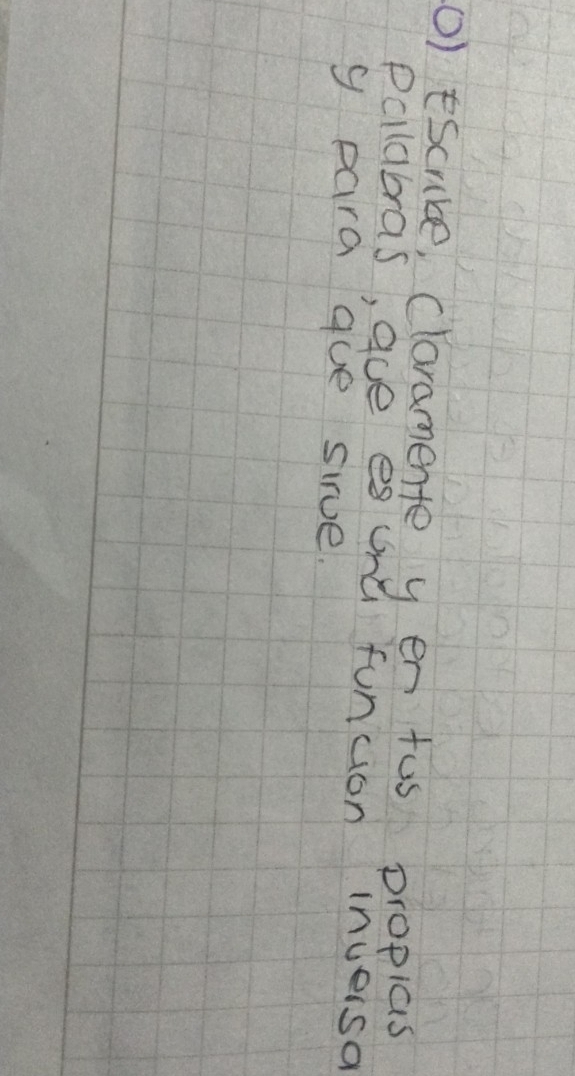 0) Escribe, Claramente y en tus propias
palabras, que es una funcion inversa
y para que sirve.